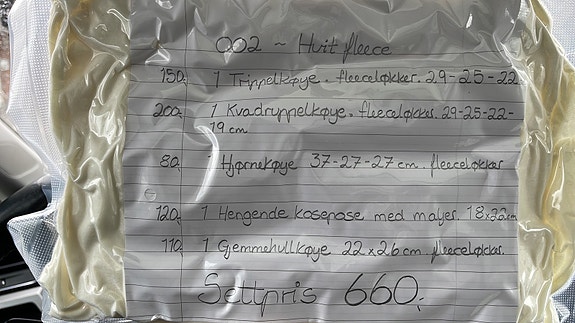 002 ~ Hvit fleece
150,- 1 Trippelkøye. fleeceløkker. 29-25-22
200,- 1 Kvadruppelkøye. fleeceløkker. 29-25-22-
19 cm
80,- 1 Hjørnekøye 37-27-27 cm. fleeceløkker
120,- 1 Hengende kosepose med maljer. 18x22cm
110,- 1 Gjemmehullkøye 22x26 cm fleeceløkker.
Settpris 660,-